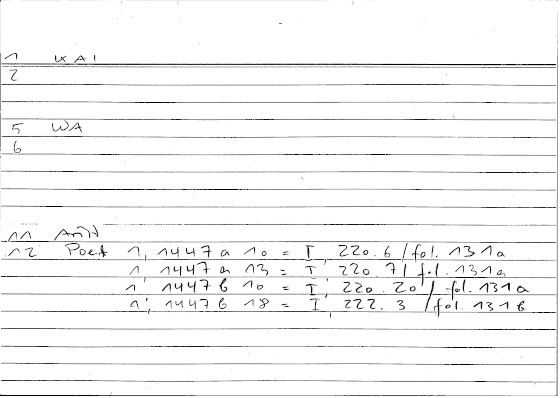 1 KAI
2
5 WA
6
11 Arist
12 Poet 1, 1447a 10 = I, 220.6 / fol. 131a
1, 1447a 13 = I, 220.7 / fol. 131a
1, 1447b 10 = I, 220.20 / fol. 131a
1, 1447b 18 = I, 222.3 / fol. 131b